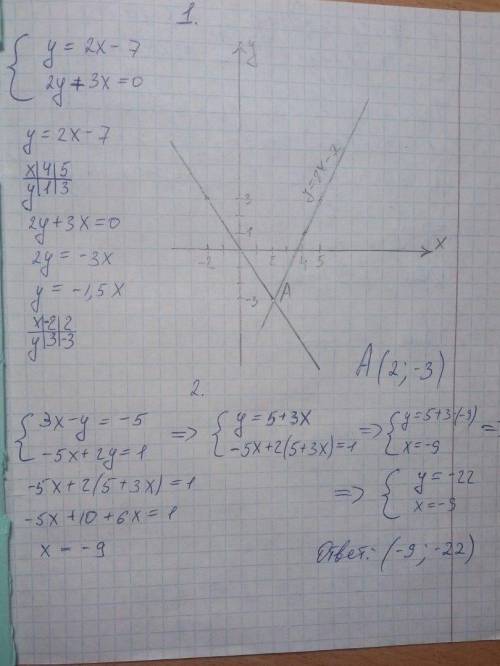 1.
{ y = 2x - 7
2y + 3x = 0
y = 2x - 7
x | 4 | 5
y | 1 | 3
2y + 3x = 0
2y = -3x
y = -1,5x
x | -2 | 2
y | 3 | -3
y
y = 2x - 7
3
1
x
-2
2
4
5
-3
A
A (2; -3)
2.
{ 3x - y = -5
-5x + 2y = 1
=> { y = 5 + 3x
-5x + 2(5 + 3x) = 1
=> { y = 5 + 3·(-9)
x = -9
=>
-5x + 2(5 + 3x) = 1
-5x + 10 + 6x = 1
x = -9
=> { y = -22
x = -9
Ответ: (-9; -22)